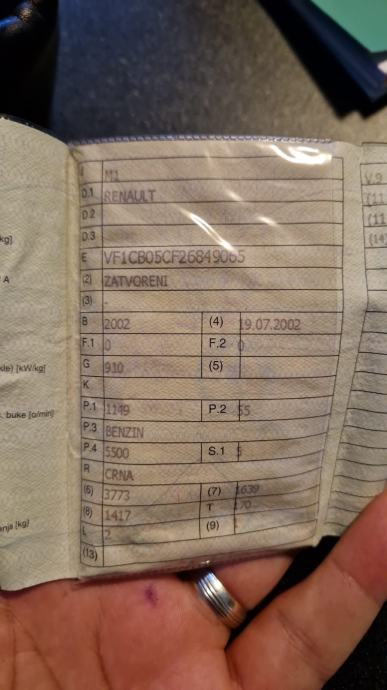 J M1
D.1 RENAULT
D.2
D.3
E VF1CB05CF26849065
(2) ZATVORENI
(3) -
B 2002 (4) 19.07.2002
F.1 0 F.2 0
G 910 (5)
K
P.1 1149 P.2 55
P.3 BENZIN
P.4 5500 S.1 5
R CRNA
(6) 3773 (7) 1639
(8) 1417 T 170
L 2 (9)
(13)
kg]
A
kle) [kW/kg]
buke [o/min]
anja [kg]
V.9
(11
(11
(14